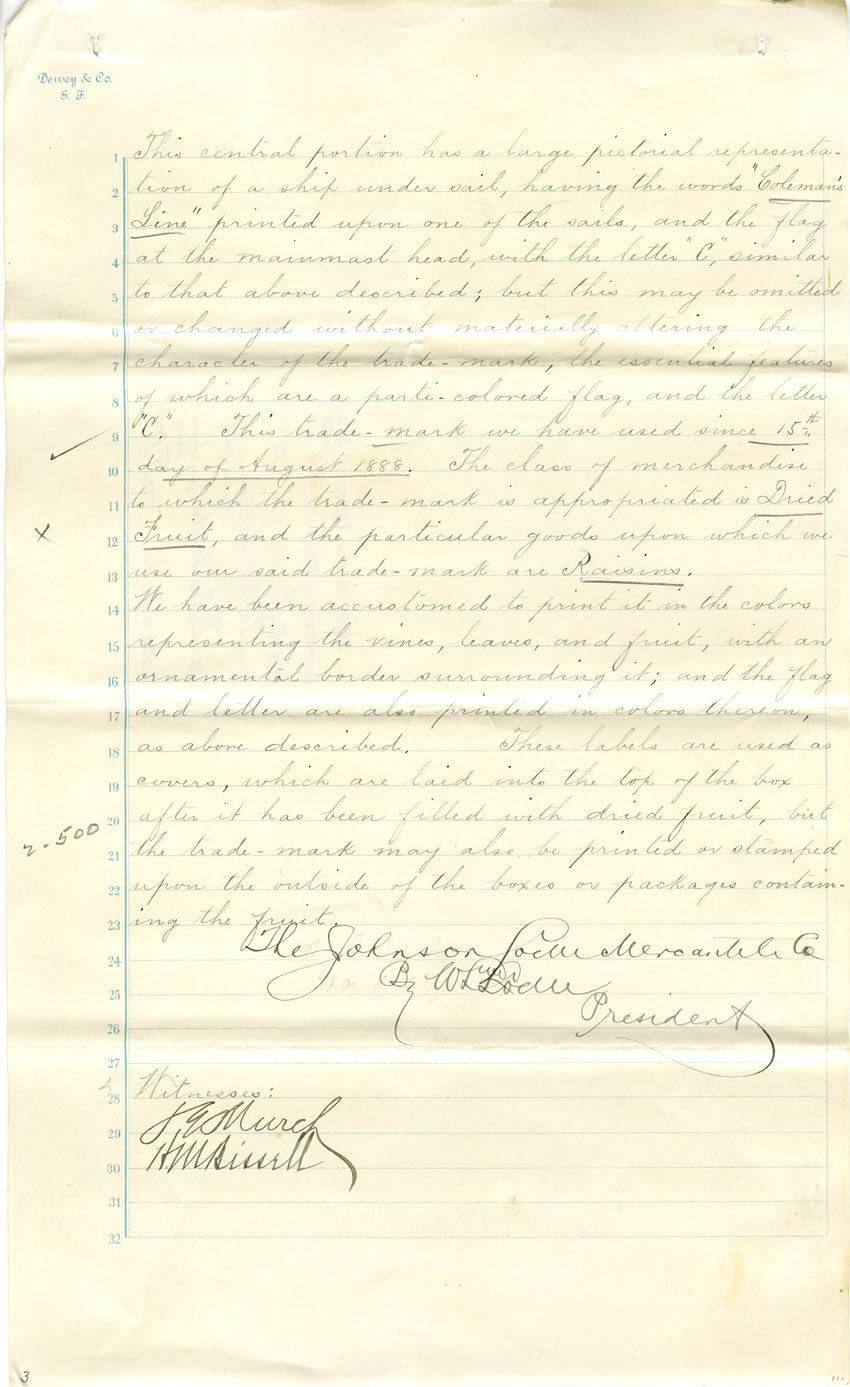 Dewey & Co.
S. F.
1 This central portion has a large pictorial representa-
2 tion of a ship under sail, having the words "Coleman's
3 Line" printed upon one of the sails, and the flag
4 at the mainmast head, with the letter "C", similar
5 to that above described; but this may be omitted
6 or changed without materially altering the
7 character of the trade-mark, the essential features
8 of which are a parti-colored flag, and the letter
9 "C." This trade-mark we have used since 15th
10 day of August 1888. The class of merchandise
11 to which the trade-mark is appropriated is Dried
x
12 Fruit, and the particular goods upon which we
13 use our said trade-mark are Raisins.
14 We have been accustomed to print it in the colors
15 representing the vines, leaves, and fruit, with an
16 ornamental border surrounding it; and the flag
17 and letter are also printed in colors thereon,
18 as above described. These labels are used as
19 covers, which are laid into the top of the box
20 after it has been filled with dried fruit, but
2-500
21 the trade-mark may also be printed or stamped
22 upon the outside of the boxes or packages contain-
23 ing the fruit.
The Johnson Locke Mercantile Co
24 By Locke
25 President
26
27
28 Witnesses:
29 Murch
30 Bissell
31
32
3